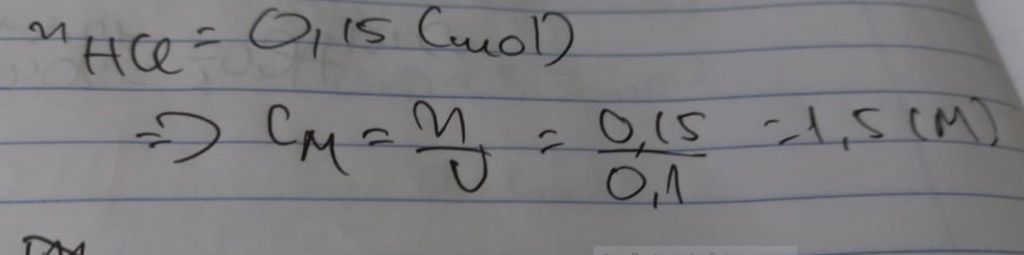 n HCl = 0,15 (mol)
=> CM = n/V = 0,15/0,1 = 1,5 (M)